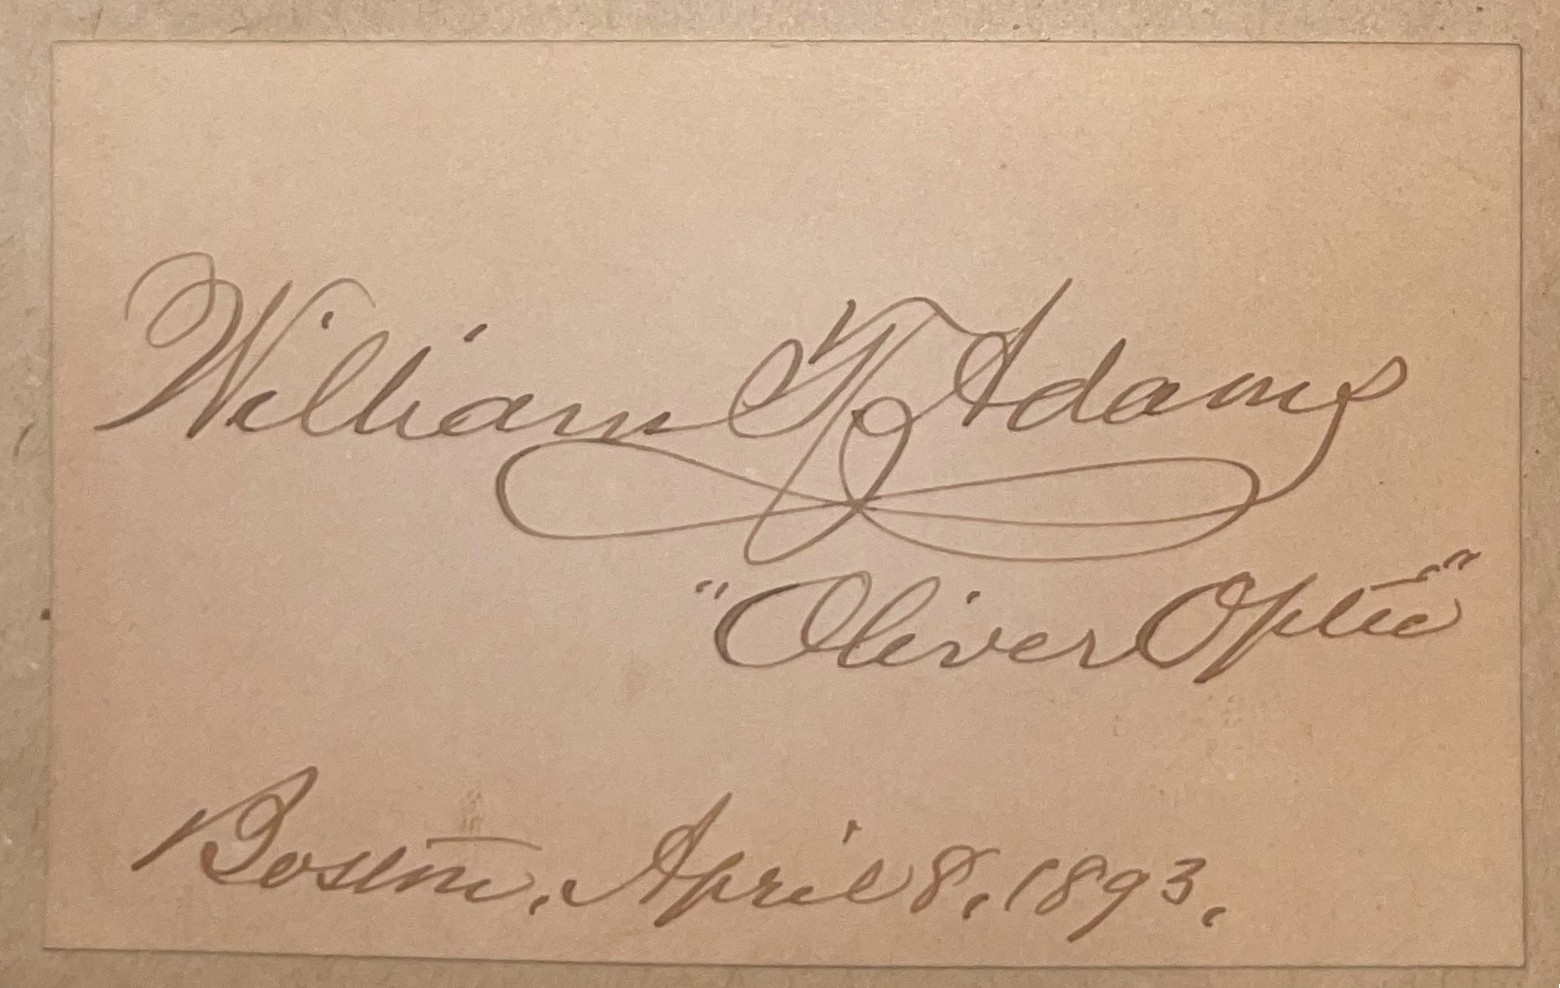 William T. Adams
"Oliver Optic"
Boston, April 8, 1893.